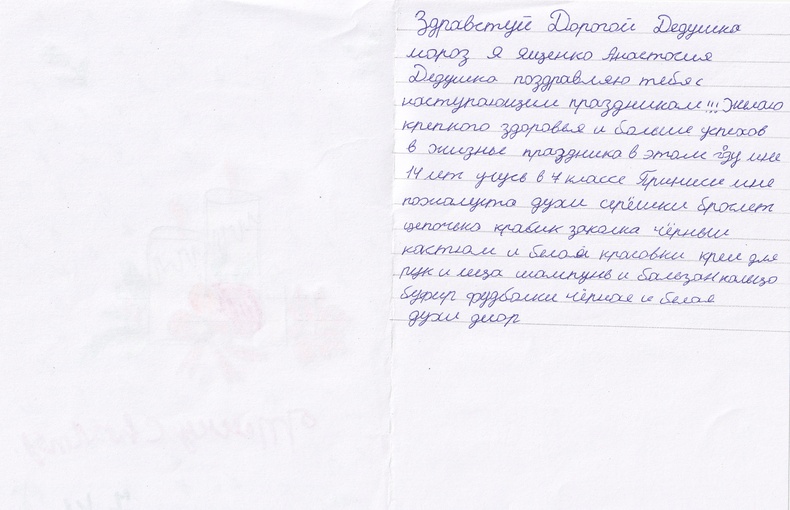 Здравствуй Дорогой Дедушка
мороз я ященко Анастосия
Дедушка поздравляю тебя с
наступающим праздником!!! Желаю
крепкого здоровья и больше успехов
в жизнье праздника в этом году мне
14 лет учусь в 7 классе Приниси мне
пожалуста духи серёшки брослет
цепочька крабик заколка чёрный
костюм и белой красовки крем для
рук и леца шампунь и бальзан кольцо
футболки чёрная и белая
духи диор